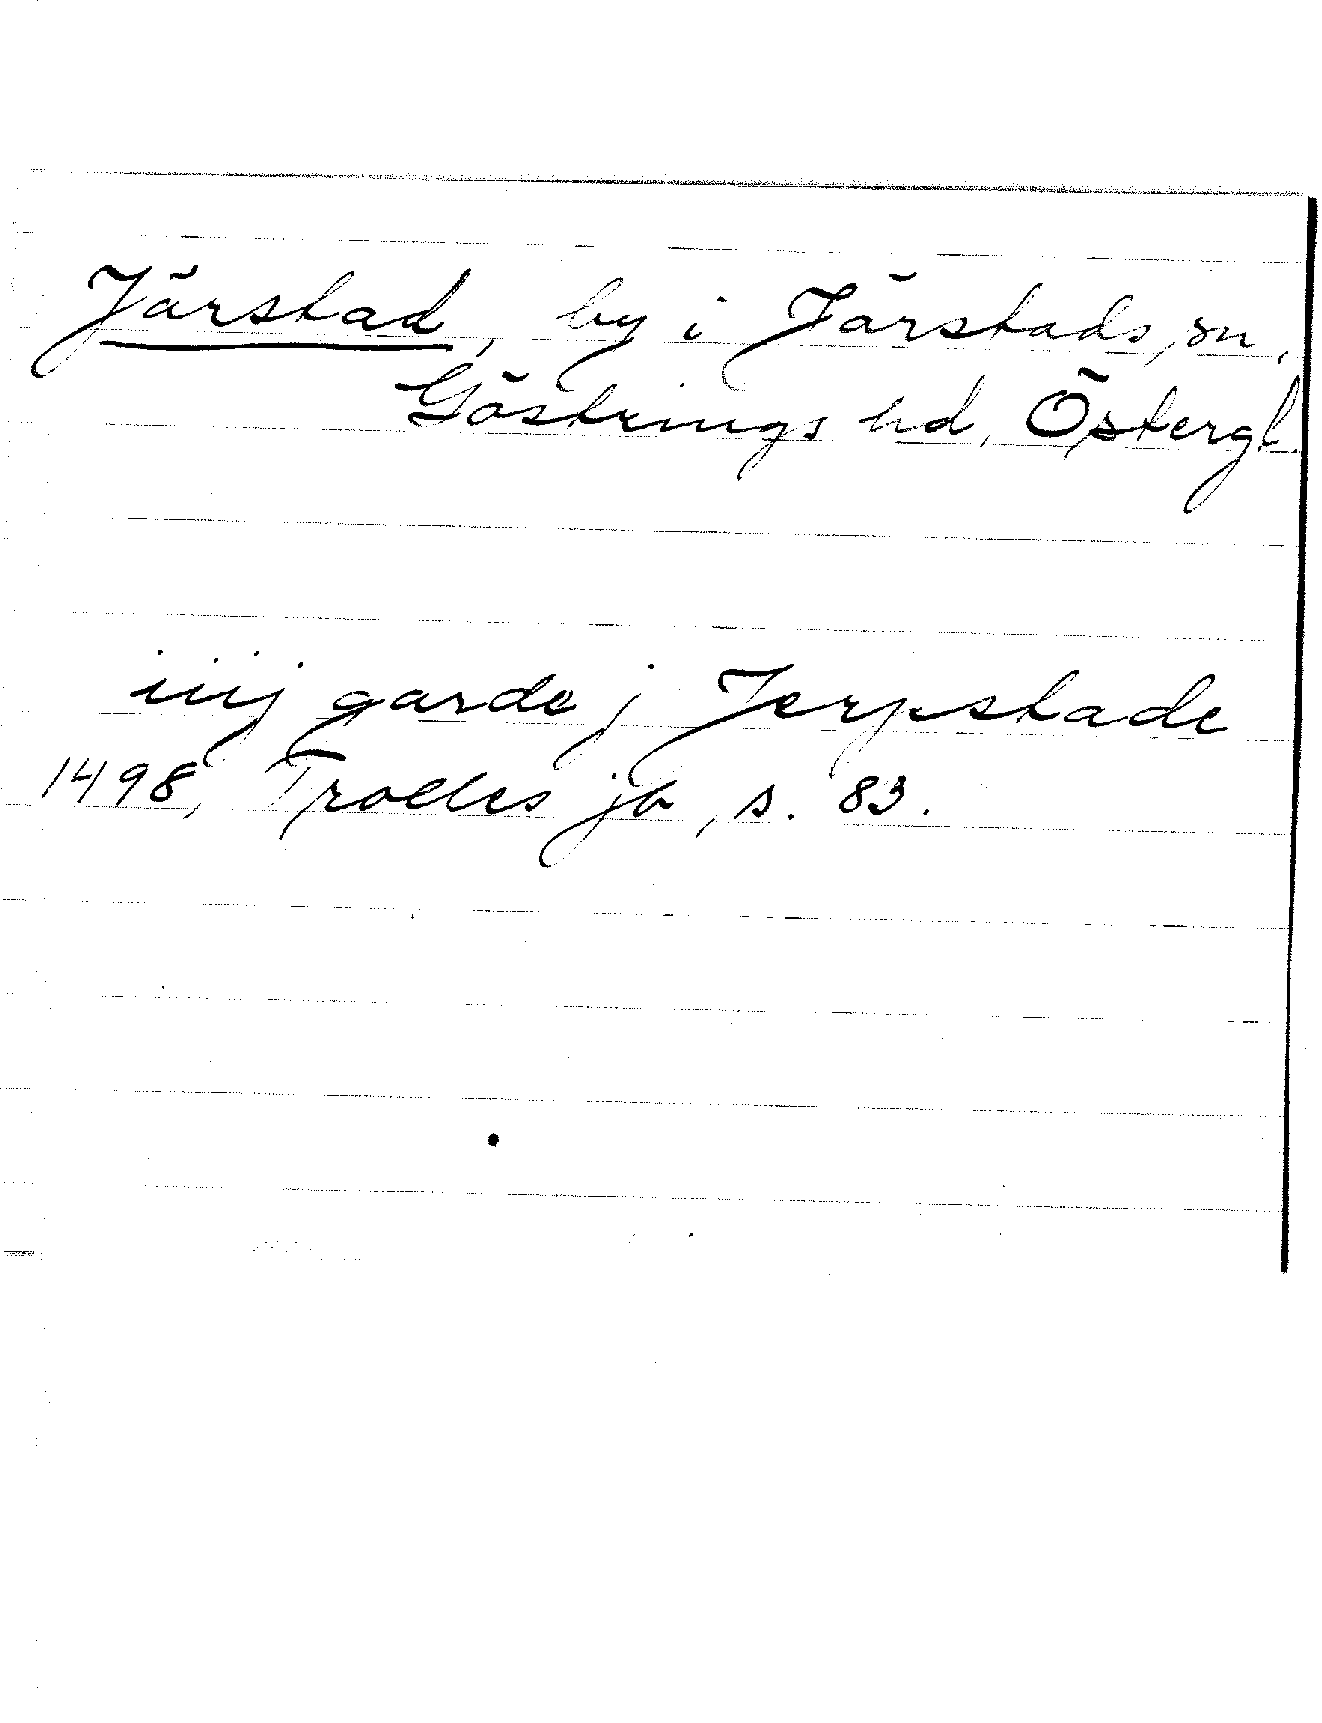 Järstad, by i Järstads sn,
Göstrings hd, Östergl.
iiij garde j Jerpstade
1498, Trolles jb, s. 83.